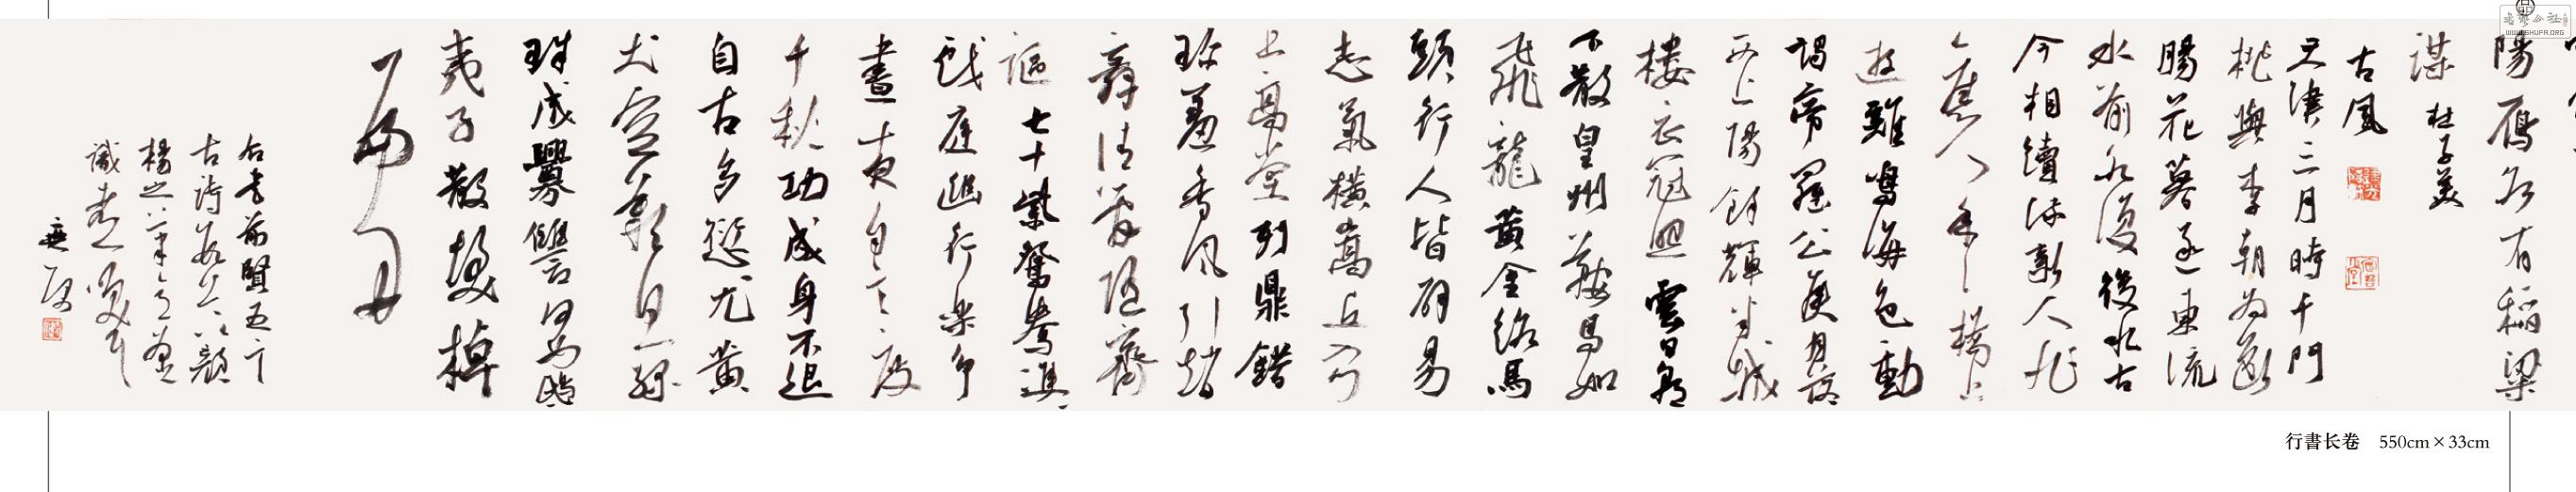 陽鴈各有稻粱
謀 杜子美
古風
天津三月時千門
桃與李朝為斷
腸花暮逐東流
水前水復後水古
今相續流新人非
舊人年年橋上
遊雞鳴海色動
謁帝羅公侯月落
西上陽餘輝半城
樓衣冠照雲日朝
下散皇州鞍馬如
飛龍黃金絡馬
頭行人皆辟易
志氣橫嵩丘入門
上高堂列鼎錯
珍羞香風引趙
舞清管隨齊
謳七十紫鴛鴦雙雙
戲庭幽行樂爭
晝夜自言度
千秋功成身不退
自古多愆尤黃
犬空歎息綠
珠成釁讎何如鴟
夷子散髮棹
扁舟
右書前賢五言
古詩
楊之筆意
識者
行書长卷 550cm×33cm
WWW.SHUFA.ORG